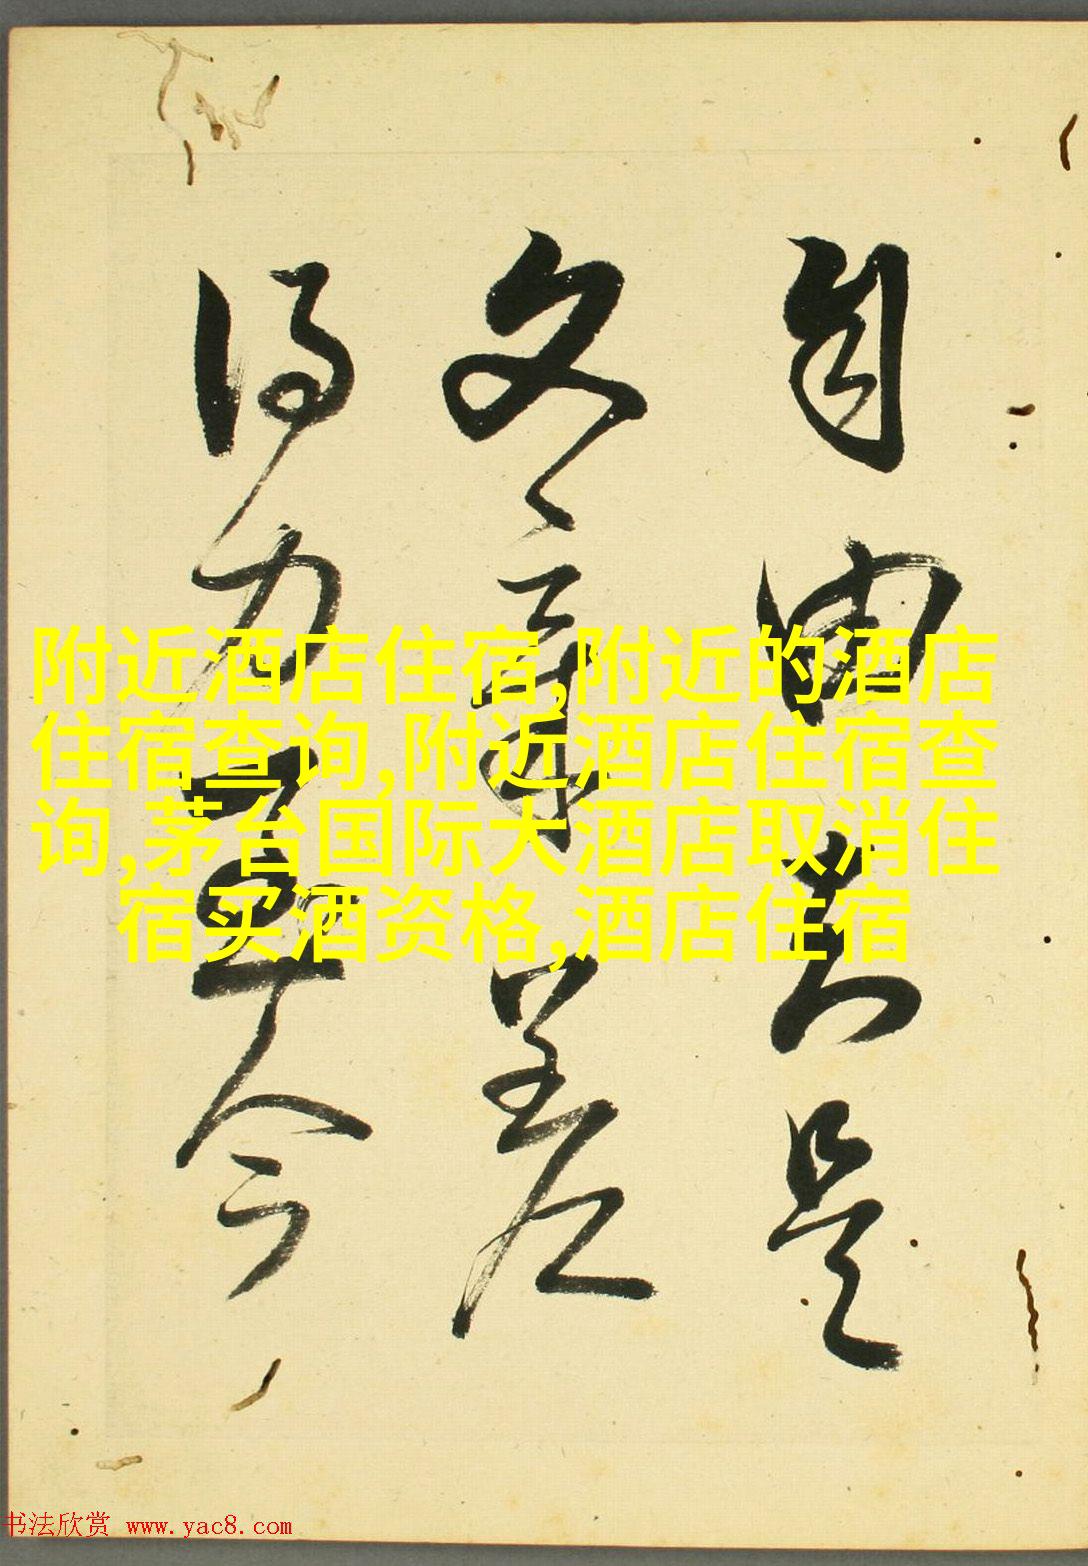 自由真是
文章差
得力
今
附近酒店住宿,附近的酒店
住宿查询,附近酒店住宿查
询,茅台国际大酒店取消住
宿买酒资格,酒店住宿
书法欣赏 www.yac8.com